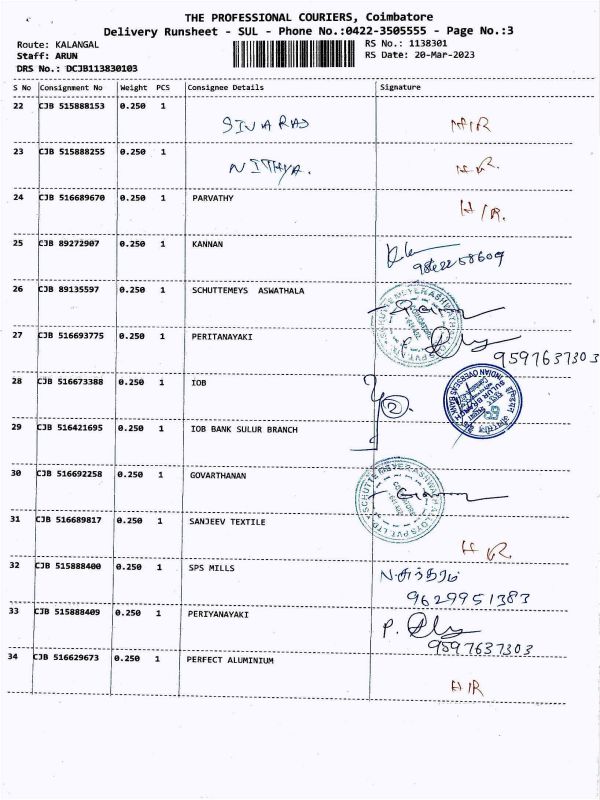 THE PROFESSIONAL COURIERS, Coimbatore
Delivery Runsheet - SUL - Phone No.:0422-3505555 - Page No.:3
Route: KALANGAL RS No.: 1138301
Staff: ARUN RS Date: 20-Mar-2023
DRS No.: DCJB113830103
S No Consignment No Weight PCS Consignee Details Signature
22 CJB 515888153 0.250 1 SIVARAJ H/R
23 CJB 515888255 0.250 1 NITHYA. H/R.
24 CJB 516689670 0.250 1 PARVATHY H/R.
25 CJB 89272907 0.250 1 KANNAN
26 CJB 89135597 0.250 1 SCHUTTEMEYS ASWATHALA
27 CJB 516693775 0.250 1 PERITANAYAKI 9597637303
28 CJB 516673388 0.250 1 IOB 2
29 CJB 516421695 1 IOB BANK SULUR BRANCH
30 CJB 516692258 0.250 1 GOVARTHANAN
31 CJB 516689817 0.250 1 SANJEEV TEXTILE H/R
32 CJB 515888400 0.250 1 SPS MILLS N.சுந்தரம்
9629951383
33 CJB 515888409 0.250 1 PERIYANAYAKI P.
9597637303
34 CJB 516629673 0.250 1 PERFECT ALUMINIUM H/R